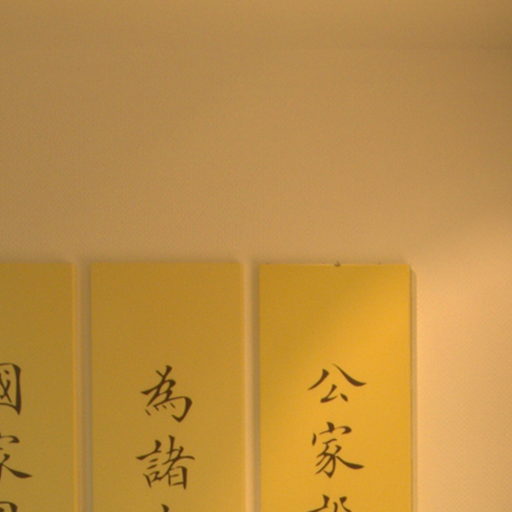 公家
為諸
國家